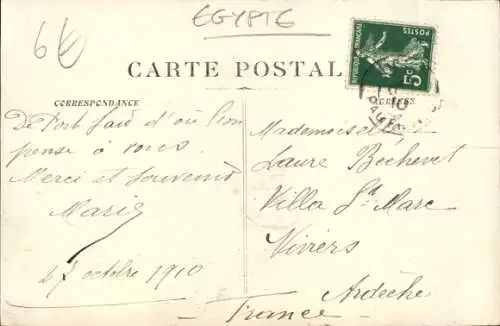 EGYPTE
6€
CARTE POSTALE
RÉPUBLIQUE FRANÇAISE
POSTES
5c
CORRESPONDANCE
De Port Saïd d'où l'on
pense à vous.
Merci et Souvenirs
Marie
27 octobre 1910
Mademoiselle
Laure Béchevet
Villa St Marc
Viviers
Ardèche
France